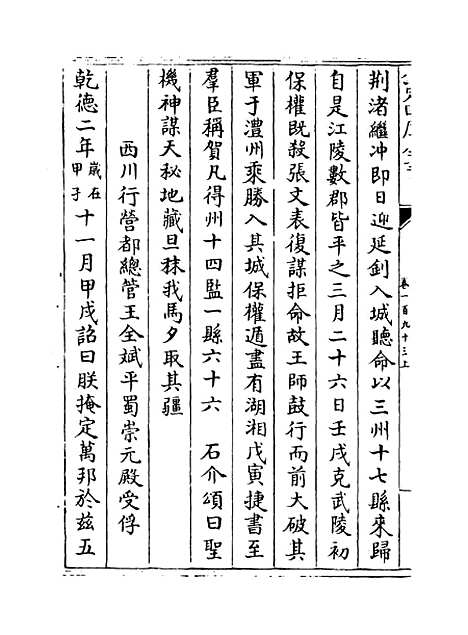 卷一百九十三上
荆渚繼冲即日迎延釗入城聽命以三州十七縣來歸
自是江陵數郡皆平之三月二十六日壬戌克武陵初
保權既殺張文表復謀拒命故王師鼓行而前大破其
軍于澧州乘勝入其城保權遁盡有湖湘戊寅捷書至
羣臣稱賀凡得州十四監一縣六十六　石介頌曰聖
機神謀天秘地藏旦秣我馬夕取其疆
西川行營都總管王全斌平蜀崇元殿受俘
乾德二年歲在甲子十一月甲戌詔曰朕掩定萬邦於兹五